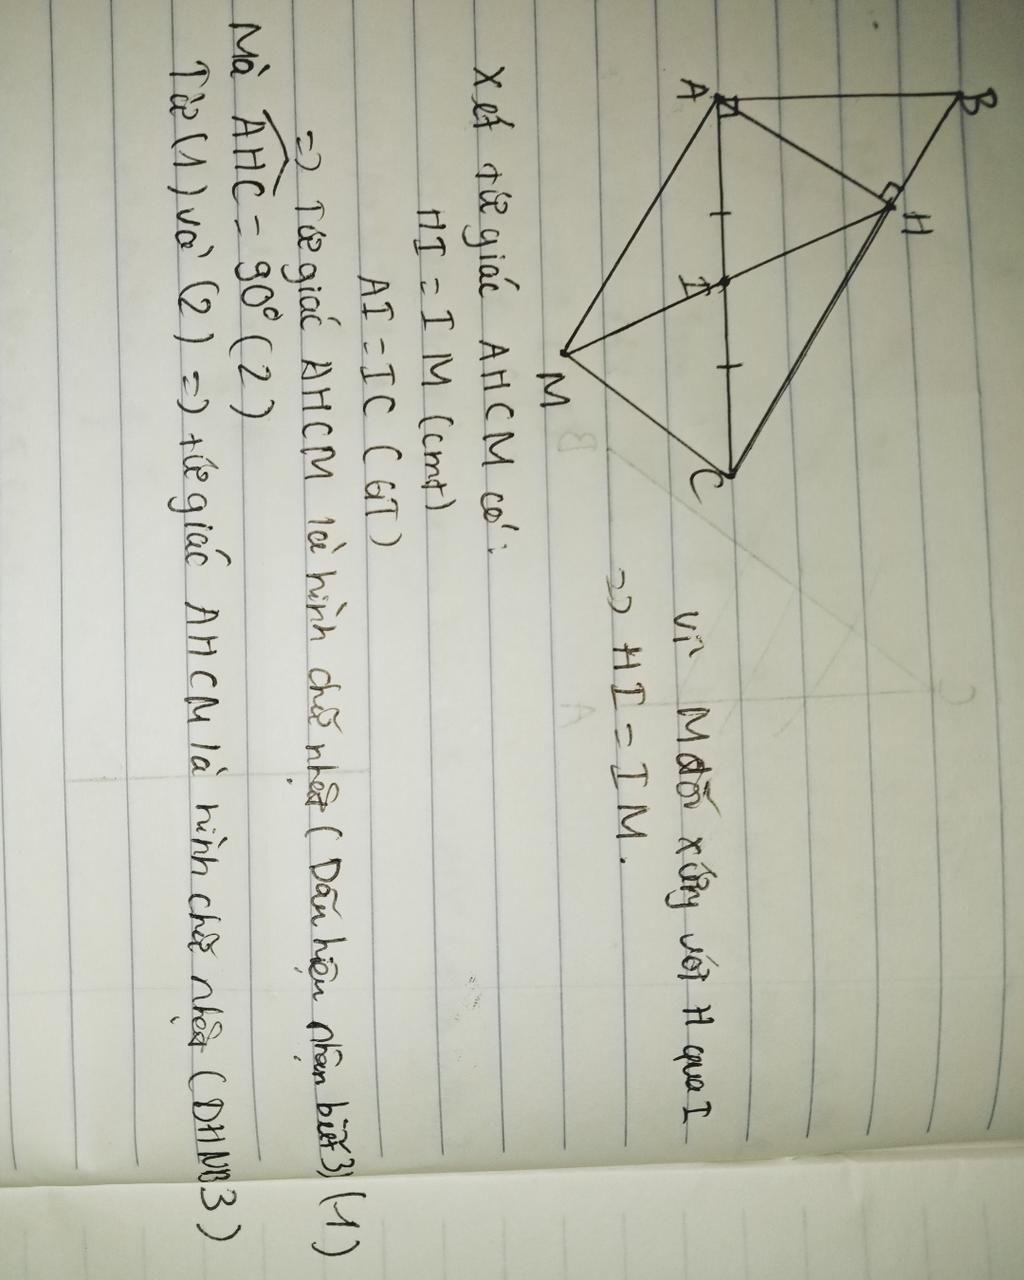 B
A
H
I
M
C
Vì M đối xứng với H qua I
=> HI = IM.
Xét tứ giác AHCM có:
HI = IM (cmt)
AI = IC (GT)
=> Tứ giác AHCM là hình chữ nhật (Dấu hiệu nhận biết 3) (1)
Mà AHC = 90° (2)
Từ (1) và (2) => tứ giác AHCM là hình chữ nhật (DHNB3)